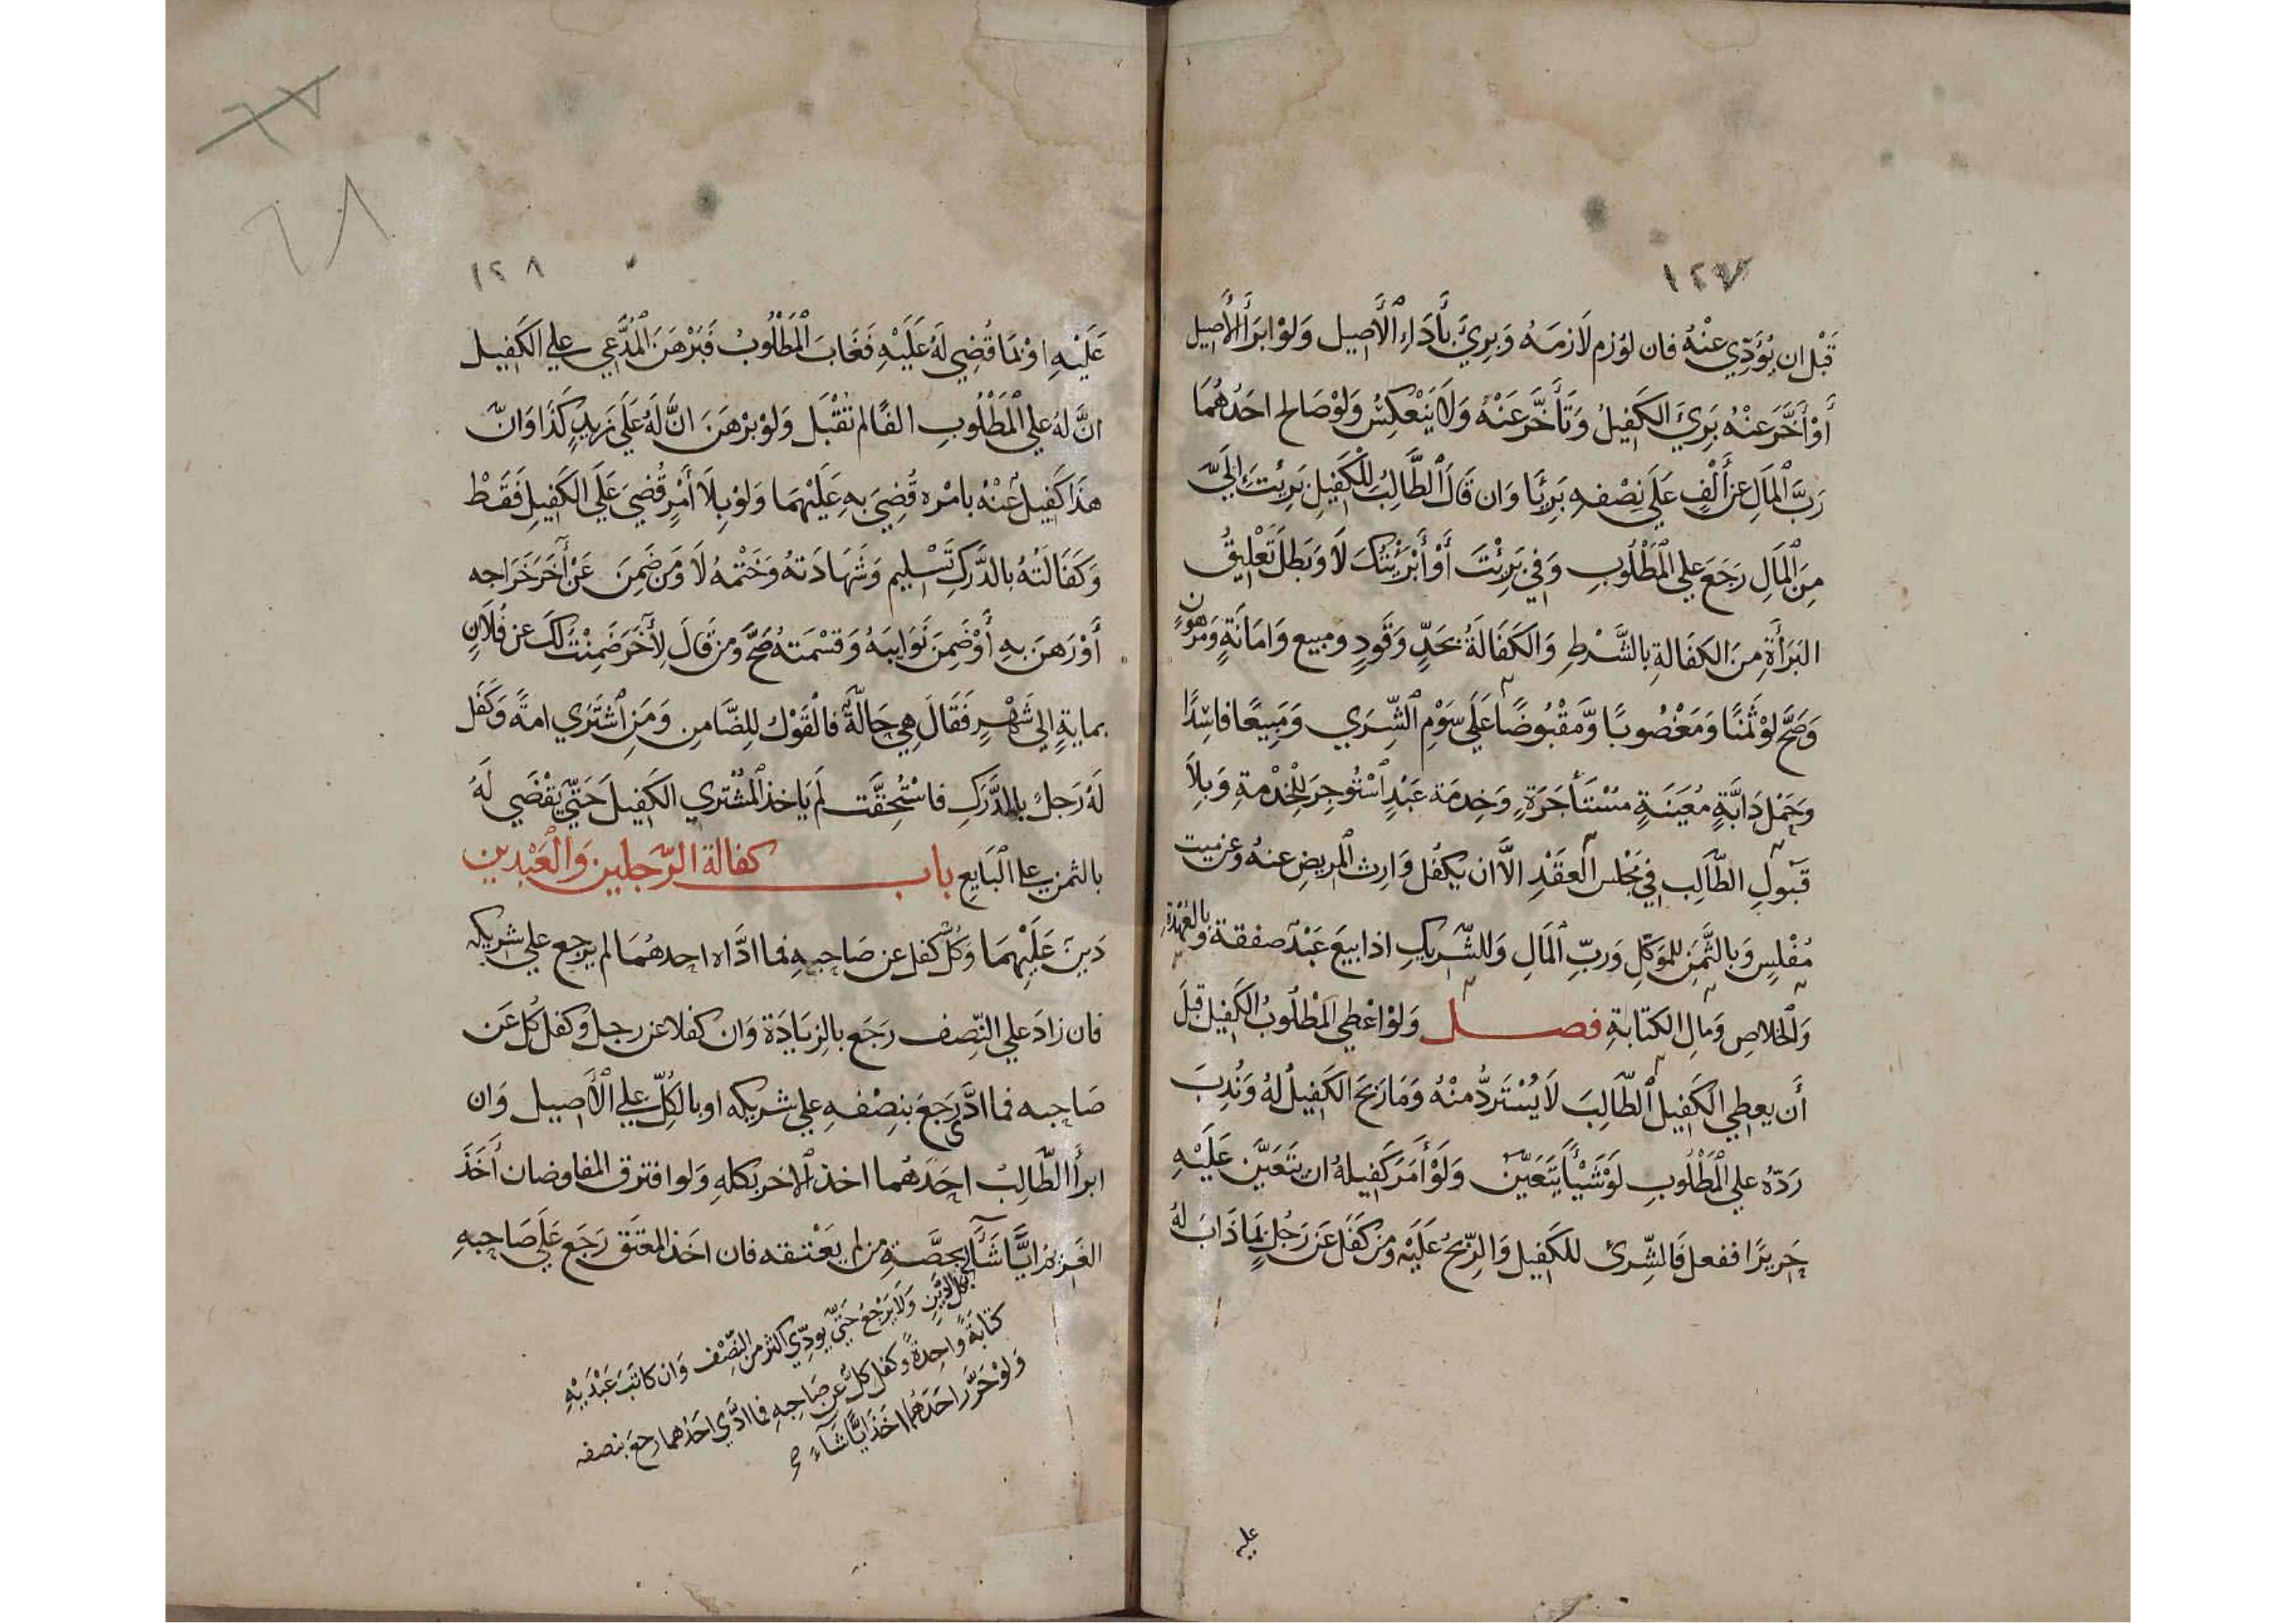 ١٢٧
قَبْل ان يُؤَدِّي عنْهُ فان لوُزِم لَازمَهُ وَبِرِيَ بأَدَاءِ الْأَصِيل وَلوْ ابرَأَ الْأَصِيل
أَوْ أَخَّرَ عَنْهُ بَرِيَ الكَفِيلُ وَتَأَخَّرَ عَنْهُ وَلَا يَنْعَكِسُ وَلوْ صَالح احَدُهُمَا
رَبَّ الْمَالِ عن أَلْفٍ عَلَي نِصْفهِ بَرِيَّا وَان قَالَ الطَّالِبُ لِلْكَفِيلِ بَرِيْتَ إِلَيَّ
مِنَ الْمَالِ رَجَعَ علي الْمَطْلُوبِ وَفي بَرِئْتَ أَوْ أَبْرَيْتُكَ لَا وَبَطلَ تَعْلِيقُ
البَرَأَةِ مِنَ الكفالةِ بالشَّرْطِ وَالكَفَالَةُ بحَدٍّ وَقَودٍ ومبيع وَامَانَةٍ وَمَرْهُونٍ
وَصَحَّ لوْ ثَمَنًا وَمَغْصُوبًا وَّمَقْبُوضًا عَلَي سَوْمِ الشِّرَي وَمَبِيعًا فاسِدًا
وَحَمْل دَابَّةٍ مُعَيَنَةٍ مُسْتَأجَرَةٍ وَخِدمَة عَبْدٍ اسْتُوجِرَ لِلْخِدْمةِ وَبِلَا
قَبولِ الطَّالِب في مَجْلس العقْدِ الَّا ان يكفُل وَارِث المريضِ عنهُ وعن ميت
مُفْلِسٍ وَبالثَّمَنِ للموَكِّلِ وَرَبِّ الْمَالِ وَللشَّرِيكِ اذا بيعَ عَبْدٌ صفقة وَبالعُهْدَةِ
وَالخلاصِ وَمَالِ الكتَابةِ فصل وَلوْ اعْطي الْمَطْلُوبُ الكَفِيل قَبلَ
أَن يعطي الكَفِيلُ الطَّالِبَ لَا يُسْتَردُّ مِنْهُ وَمَا رَبحَ الكَفِيلُ لهُ وَنُدِبَ
رَدّهُ علي الْمَطْلُوبِ لوْ شَيْأً يَتَعَيّن وَلَوْ أَمَرَ كَفِيلهُ ان يتَعَيَّن عَلَيْهِ
حَرِيرًا ففعل فَالشِّرَى للكَفِيل وَالرِّبحُ عَلَيْهِ وَمن كَفَلَ عَن رَجُلٍ بمَا ذَابَ لهُ
عليه
١٢٨
عَلَيْهِ اوْ بمَا قُضِي لَهُ عَلَيْهِ فَغَابَ الْمَطْلُوبُ فَبَرْهَنَ الْمُدَّعِي علي الكَفِيل
انَّ لهُ علي الْمَطْلُوبِ الفًا لم تقْبَل وَلوْ بَرْهَنَ انَّ لَهُ عَلَي زَيدٍ كَذَا وَانّ
هذَا كَفِيلٌ عنْهُ بامْرهِ قُضِيَ بهِ عَلَيْهِمَا وَلوْ بِلَا أَمْرٍ قُضِيَ عَلَي الكَفِيلِ فَقَطْ
وَكفَالَتُهُ بالدَّرَكِ تَسْلِيم وَشَهَادَتهُ وَخَتْمُهُ لَا وَمَن ضَمِنَ عَنْ آخَرَ خَرَاجه
أَوْ رَهنَ بهِ أَوْ ضَمِنَ نَوَايبَهُ وَقسْمَتهُ صَحَّ وَمن قَالَ لِآخَرَ ضَمِنْتُ لَكَ عن فُلَانٍ
بمايةٍ الي شَهْرٍ فَقَالَ هِي حَالَّةٌ فالْقوْل لِلضَّامن وَمَنِ اشْتَرَي امةً وَكَفَل
لَهُ رَجلٌ بالدَّرَكِ فاسْتُحِقَّت لَم يَاخذ الْمُشْتَري الكَفِيل حَتَّي يَقْضَي لَهُ
بالثمن علي الْبَايع باب كفالة الرّجلين وَالْعَبْدين
دَينٌ عَلَيْهِمَا وَكُلٌّ كفل عن صَاحِبهِ فما ادَّاه احدهُمَا لم يرجع علي شريكه
فان زادَ علي النّصف رَجَعَ بالزيَادَة وَان كفلا عن رجل وكفل كُل عَن
صَاحبه فما ادَّي رَجَعَ بنِصْفهِ علي شريكه او بالكُلِّ علي الْأَصيل وَان
ابرأ الطَّالِبُ احَدَهُمَا اخذ الاخر بكلهِ وَلو افترق المفاوضان أَخَذَ
الغَريم ايًّا شَآء بحصَّةِ من لم يَعْتقه فان اخَذ المعتق رَجَع عَلَي صَاحبهِ
بكل الدَّيْنِ وَلَا يَرْجعُ حَتّي يودّي اكثر من النّصْف وَان كاتبَ عَبْدَيْهِ
كتابَةً وَاحِدةً وكفل كلٌّ عن صَاحِبهِ فما ادَّي احَدهُما رجعَ بنصفه
وَلوْ حَرَّرَ احَدَهُمَا اخَذَ ايًّا شَآءَ